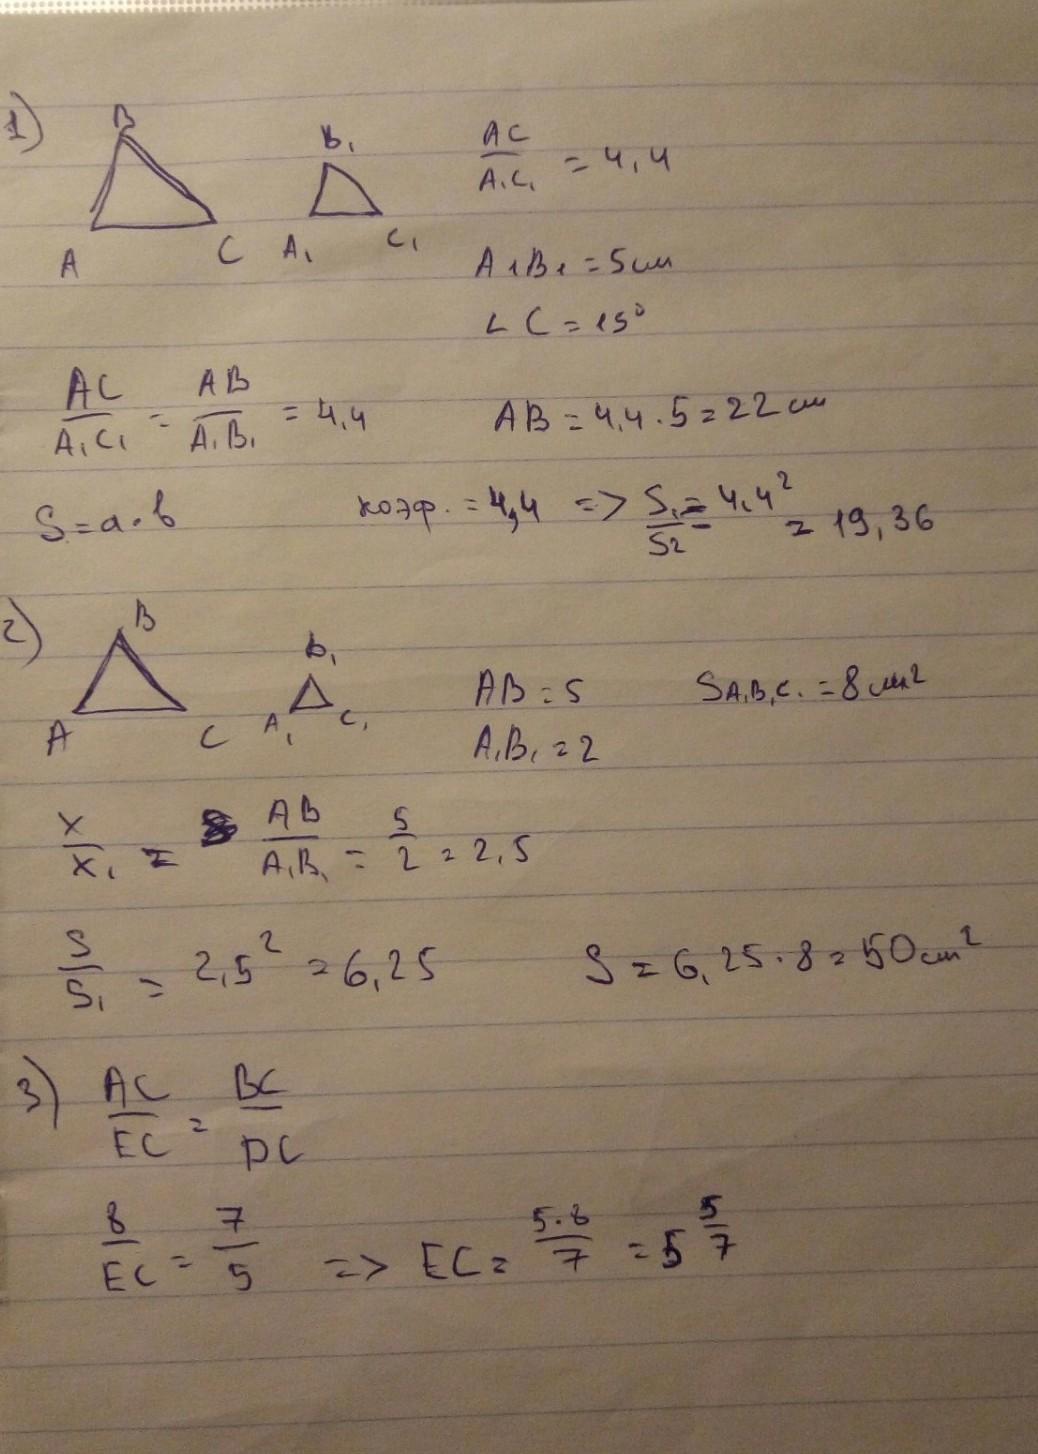 1)
B
B₁
AC/A₁C₁ = 4,4
A C A₁ C₁
A₁B₁ = 5 см
∠C = 15°
AC/A₁C₁ = AB/A₁B₁ = 4,4 AB = 4,4 · 5 = 22 см
S = a · b коэф. = 4,4 => S₁/S₂ = 4,4² = 19,36
2)
B
B₁
A C A₁ C₁
AB = 5 S A₁B₁C₁ = 8 см²
A₁B₁ = 2
x/x₁ = AB/A₁B₁ = 5/2 = 2,5
S/S₁ = 2,5² = 6,25 S = 6,25 · 8 = 50 см²
3) AC/EC = BC/DC
8/EC = 7/5 => EC = 5·8/7 = 5 5/7